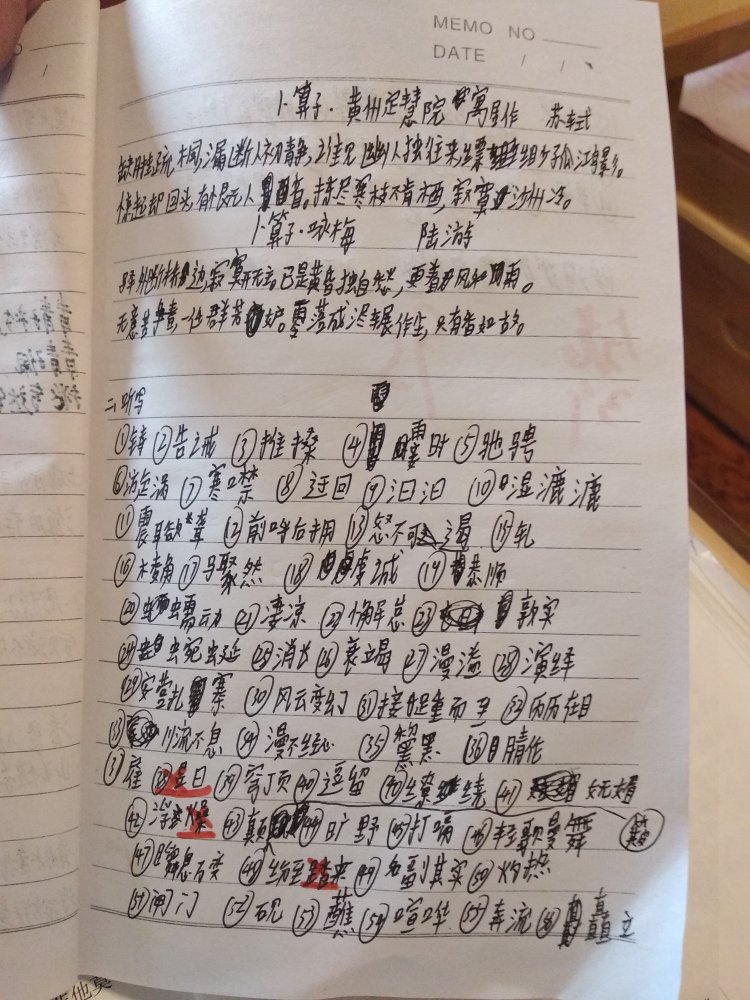 MEMO NO
DATE / /
卜算子·黄州定慧院寓居作 苏轼
缺月挂疏桐,漏断人初静,谁见幽人独往来,缥缈孤鸿影。
惊起却回头,有恨无人省。拣尽寒枝不肯栖,寂寞沙洲冷。
卜算子·咏梅 陆游
驿外断桥边,寂寞开无主。已是黄昏独自愁,更着风和雨。
无意苦争春,一任群芳妒。零落成泥碾作尘,只有香如故。
二、听写
①铸 ②告之戒 ③推搡 ④霎时 ⑤驰骋
⑥漩涡 ⑦寒噤 ⑧迂回 ⑨汩汩 ⑩湿漉漉
⑪震耳欲聋 ⑫前呼后拥 ⑬怒不可遏 ⑮轧
⑯棱角 ⑰骤然 ⑱虔诚 ⑲恭顺
⑳蠕动 ㉑凄凉 ㉒懈怠 ㉓敦实
㉔蜿蜒 ㉕消长 ㉖衰竭 ㉗漫溢 ㉘演绎
㉙安营扎寨 ㉚风云变幻 ㉛接踵而至 ㉜历历在目
川流不息 ㉞漫不经心 ㉟黧黑 ㊱睛
雇 日 ㊴穹顶 ㊵逗留 ㊵缭绕 ㊶妩媚
㊷浮 ㊸颠 ㊹旷野 ㊺打嗝 ㊻轻歌曼舞 巅
㊼瞬息万变 ㊽纷至 来 ㊾名副其实 ㊿灼热
51闸门 52砚 53蘸 54喧哗 55奔流 56矗立